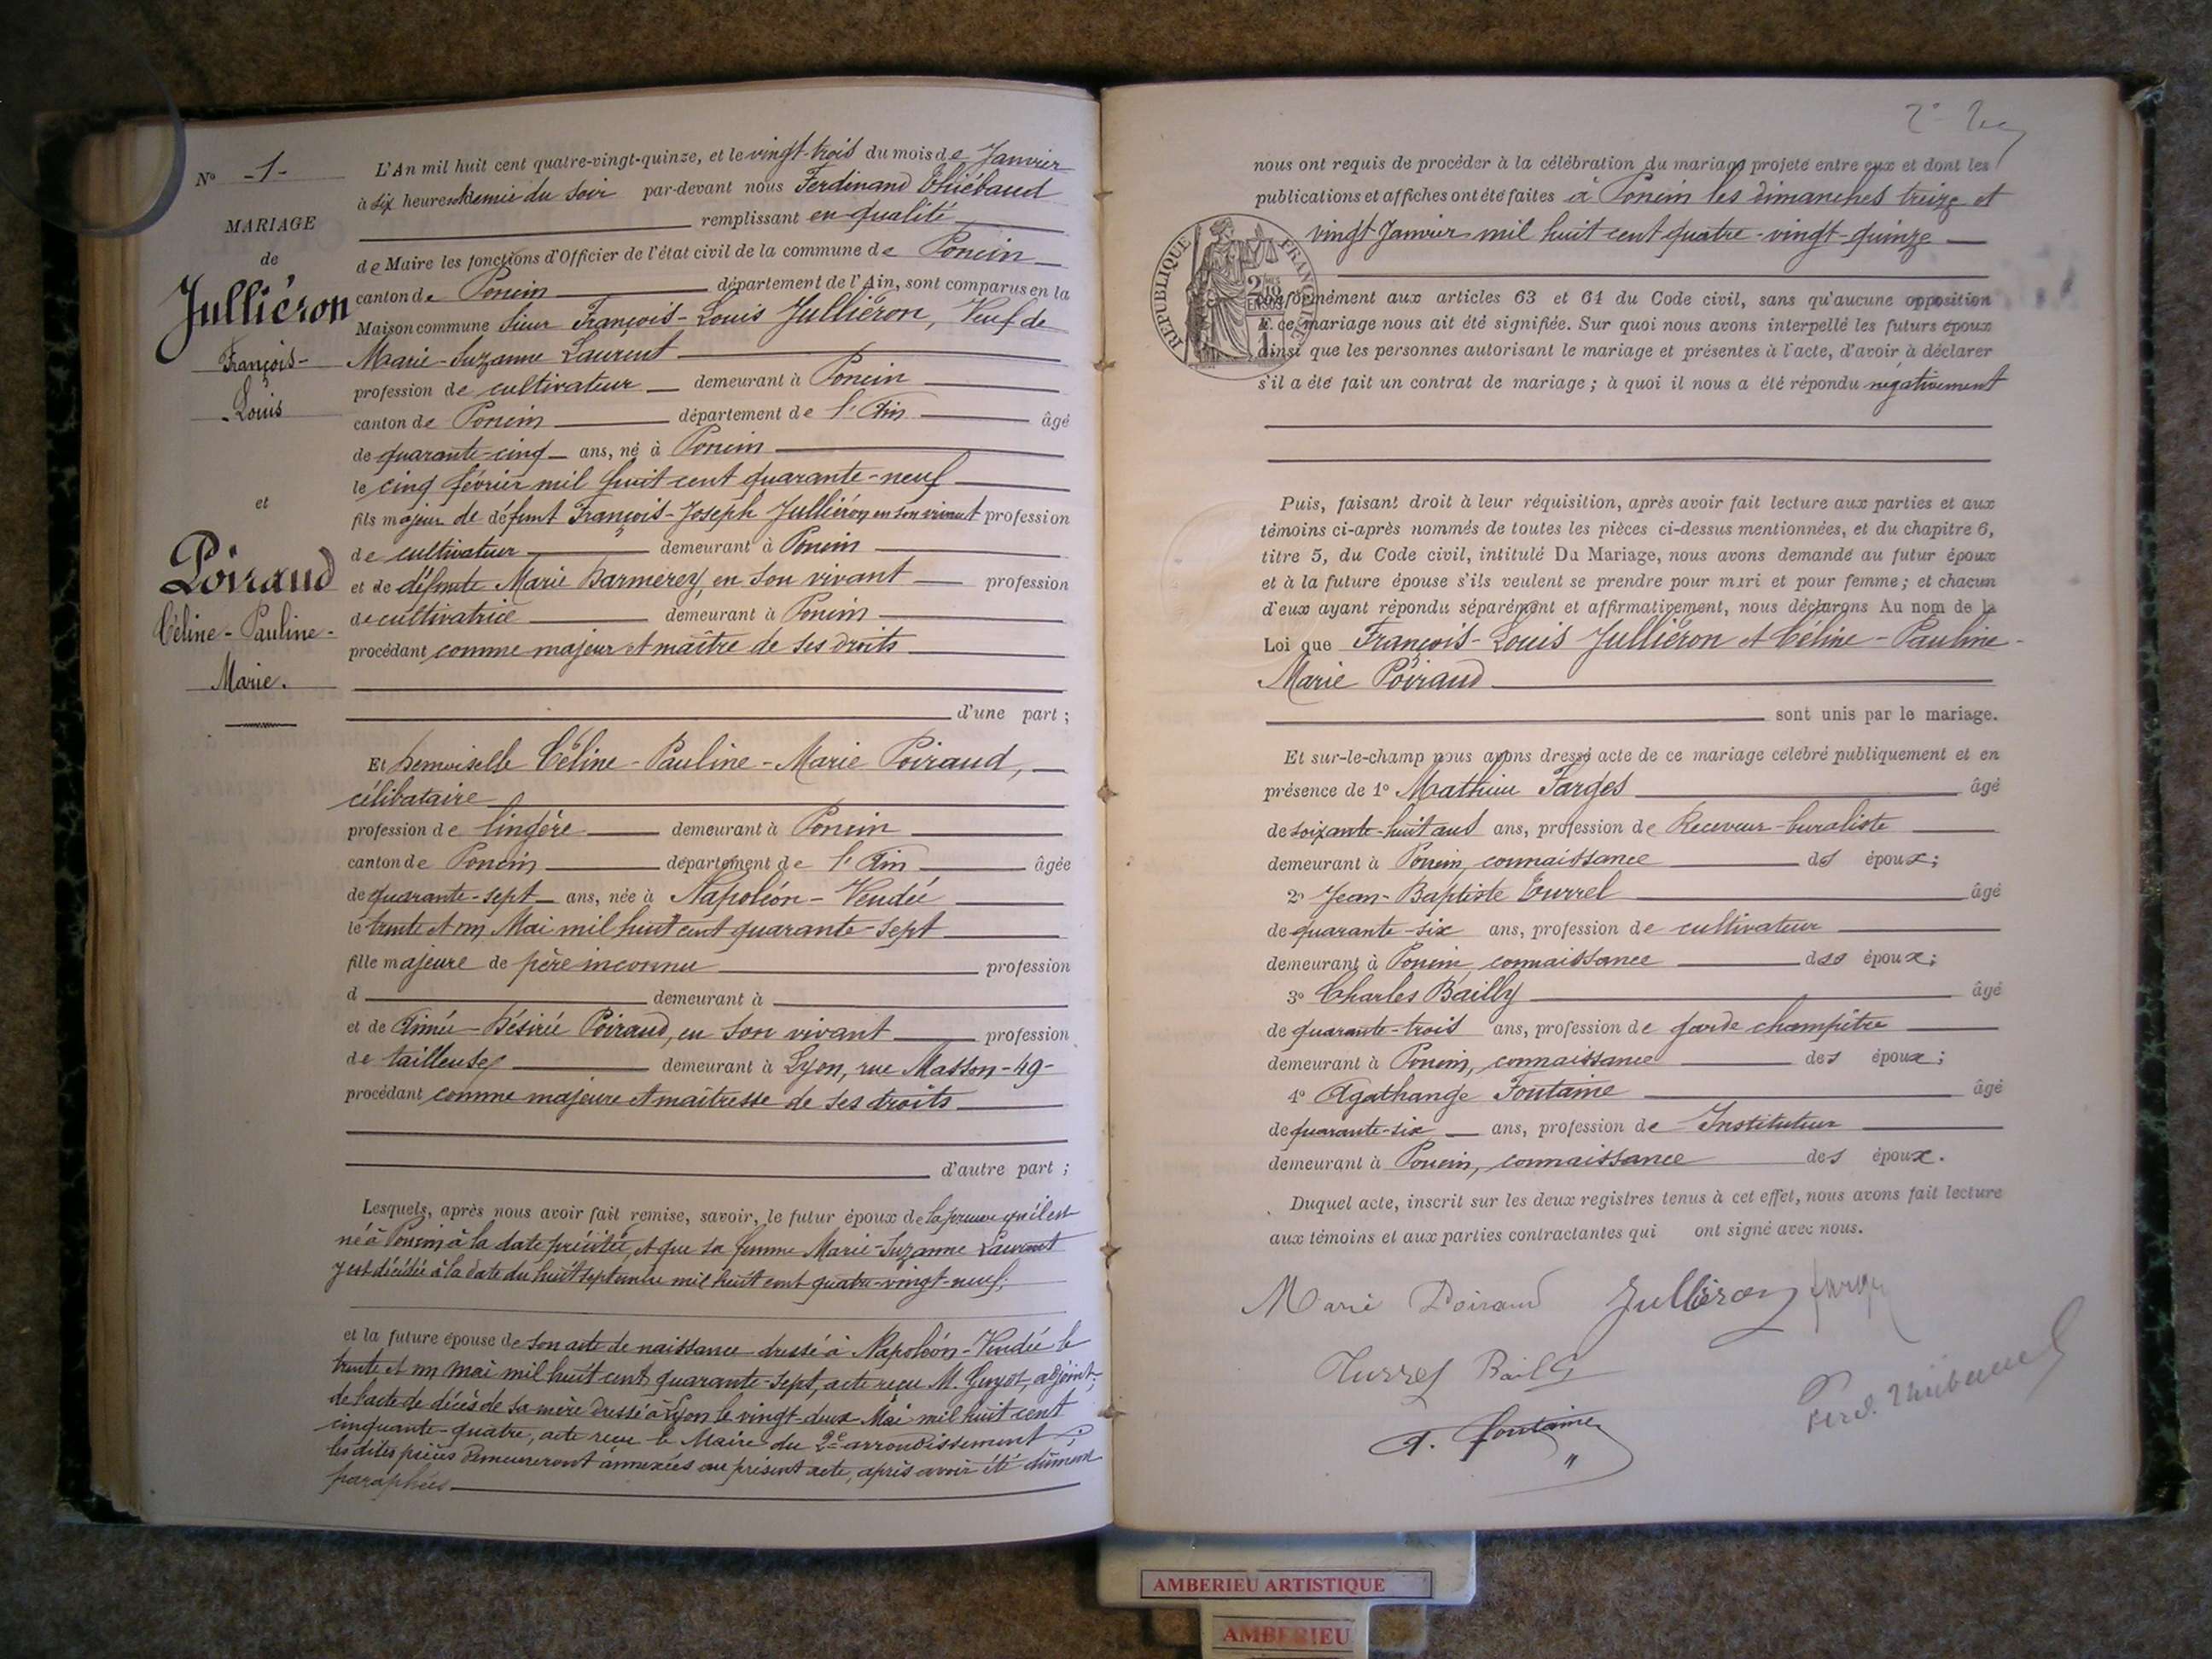 N° -1-
MARIAGE
de
Julliéron
François-
Louis
et
Poiraud
Céline - Pauline -
Marie.
L'An mil huit cent quatre-vingt-quinze, et le vingt-trois du mois de Janvier
à six heures demie du soir par-devant nous Ferdinand Thiébaud
remplissant en qualité
de Maire les fonctions d'Officier de l'état civil de la commune de Poncin
canton de Poncin département de l'Ain, sont comparus en la
Maison commune Sieur François-Louis Julliéron, Veuf de
Marie-Suzanne Laurent
profession de cultivateur demeurant à Poncin
canton de Poncin département de l'Ain âgé
de quarante-cinq ans, né à Poncin
le cinq février mil huit cent quarante-neuf
fils majeur de défunt François-Joseph Julliéron en son vivant profession
de cultivateur demeurant à Poncin
et de défunte Marie Darmerey, en son vivant profession
de cultivatrice demeurant à Poncin
procédant comme majeur et maître de ses droits
d'une part ;
Et Demoiselle Céline - Pauline - Marie Poiraud,
célibataire
profession de lingère demeurant à Poncin
canton de Poncin département de l'Ain âgée
de quarante-sept ans, née à Napoléon - Vendée
le trente et un Mai mil huit cent quarante-sept
fille majeure de père inconnu profession
d demeurant à
et de Aimée-Désirée Poiraud, en son vivant profession
de tailleuse demeurant à Lyon, rue Masson -49-
procédant comme majeure et maîtresse de ses droits
d'autre part ;
Lesquels, après nous avoir fait remise, savoir, le futur époux de la preuve qu'il est
né à Poncin à la date précitée, et que sa femme Marie-Suzanne Laurent
y est décédée à la date du huit septembre mil huit cent quatre-vingt-neuf;
et la future épouse de son acte de naissance dressé à Napoléon-Vendée le
trente et un mai mil huit cent quarante-sept, acte reçu M. Guyot, adjoint;
de l'acte de décès de sa mère dressé à Lyon le vingt-deux Mai mil huit cent
cinquante-quatre, acte reçu le Maire du 2e arrondissement
les dites pièces demeureront annexées au présent acte, après avoir été dûment
paraphées
nous ont requis de procéder à la célébration du mariage projeté entre eux et dont les
publications et affiches ont été faites à Poncin les dimanches treize et
vingt Janvier mil huit cent quatre-vingt-quinze
REPUBLIQUE FRANÇAISE
conformément aux articles 63 et 64 du Code civil, sans qu'aucune opposition
à ce mariage nous ait été signifiée. Sur quoi nous avons interpellé les futurs époux
ainsi que les personnes autorisant le mariage et présentes à l'acte, d'avoir à déclarer
s'il a été fait un contrat de mariage ; à quoi il nous a été répondu négativement
Puis, faisant droit à leur réquisition, après avoir fait lecture aux parties et aux
témoins ci-après nommés de toutes les pièces ci-dessus mentionnées, et du chapitre 6,
titre 5, du Code civil, intitulé Du Mariage, nous avons demandé au futur époux
et à la future épouse s'ils veulent se prendre pour mari et pour femme ; et chacun
d'eux ayant répondu séparément et affirmativement, nous déclarons Au nom de la
Loi que François-Louis Julliéron et Céline - Pauline -
Marie Poiraud
sont unis par le mariage.
Et sur-le-champ nous avons dressé acte de ce mariage célébré publiquement et en
présence de 1° Mathieu Farges âgé
de soixante-huit ans ans, profession de Receveur-buraliste
demeurant à Poncin, connaissance des époux ;
2° Jean-Baptiste Turrel âgé
de quarante-six ans, profession de cultivateur
demeurant à Poncin, connaissance des époux ;
3° Charles Bailly âgé
de quarante-trois ans, profession de garde champêtre
demeurant à Poncin, connaissance des époux ;
4° Agathange Fontaine âgé
de quarante-six ans, profession de Instituteur
demeurant à Poncin, connaissance des époux.
Duquel acte, inscrit sur les deux registres tenus à cet effet, nous avons fait lecture
aux témoins et aux parties contractantes qui ont signé avec nous.
Marie Poiraud Julliéron farges
Turrel Bailly
A. fontaine Ferd. Thiébaud
AMBERIEU ARTISTIQUE
AMBERIEU